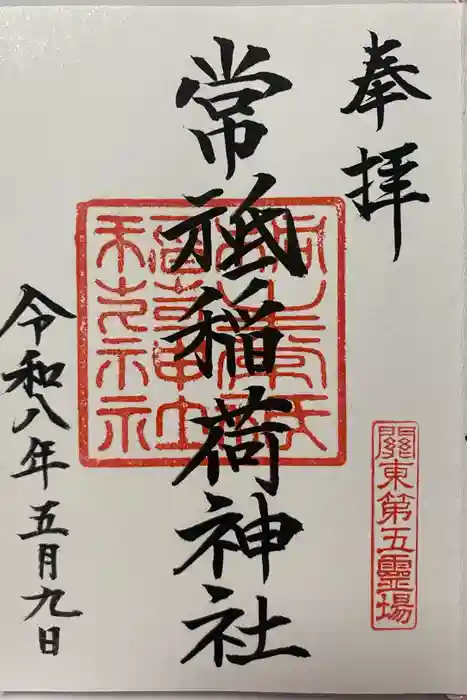 奉拝
關東第五靈場
常祗稲荷神社
令和八年五月九日